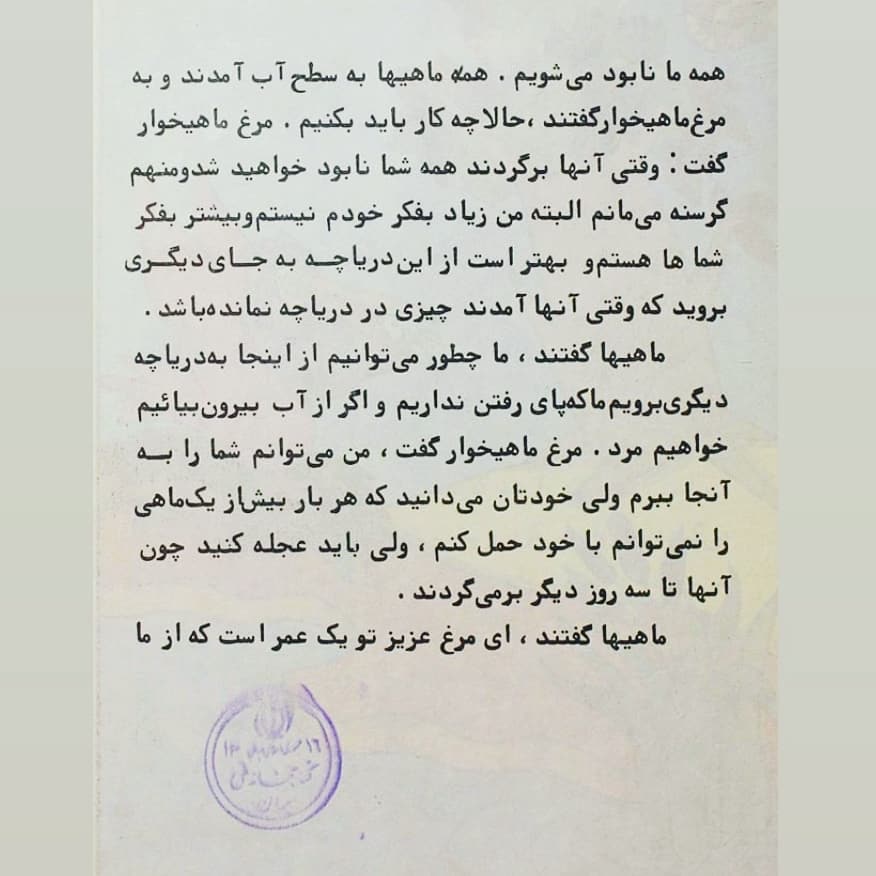 همه ما نابود می‌شویم . همه ماهیها به سطح آب آمدند و به
مرغ‌ماهیخوارگفتند ،حالاچه کار باید بکنیم . مرغ ماهیخوار
گفت : وقتی آنها برگردند همه شما نابود خواهید شدومنهم
گرسنه می‌مانم البته من زیاد بفکر خودم نیستم‌وبیشتر بفکر
شما ها هستم‌و بهتر است از این‌دریاچــه به جــای دیگــری
بروید که وقتی آنها آمدند چیزی در دریاچه نمانده‌باشد .
ماهیها گفتند ، ما چطور می‌توانیم از اینجا به‌دریاچه
دیگری‌برویم‌ماکه‌پای رفتن نداریم و اگر از آب بیرون‌بیائیم
خواهیم مرد . مرغ ماهیخوار گفت ، من می‌توانم شما را بــه
آنجا ببرم ولی خودتان می‌دانید که هر بار بیش‌از یک‌ماهی
را نمی‌توانم با خود حمل کنم ، ولی باید عجله کنید چون
آنها تا سه روز دیگر برمی‌گردند .
ماهیها گفتند ، ای مرغ عزیز تو یک عمر است که از ما